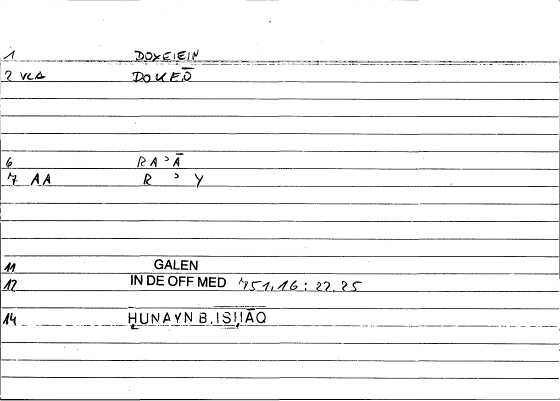 1 DOKEIEIN
2 VCA DOKEŌ
6 RAʾĀ
7 AA R ʾ Y
11 GALEN
12 IN DE OFF MED 751,16 : 22,25
14 ḤUNAYN B. ISḤĀQ